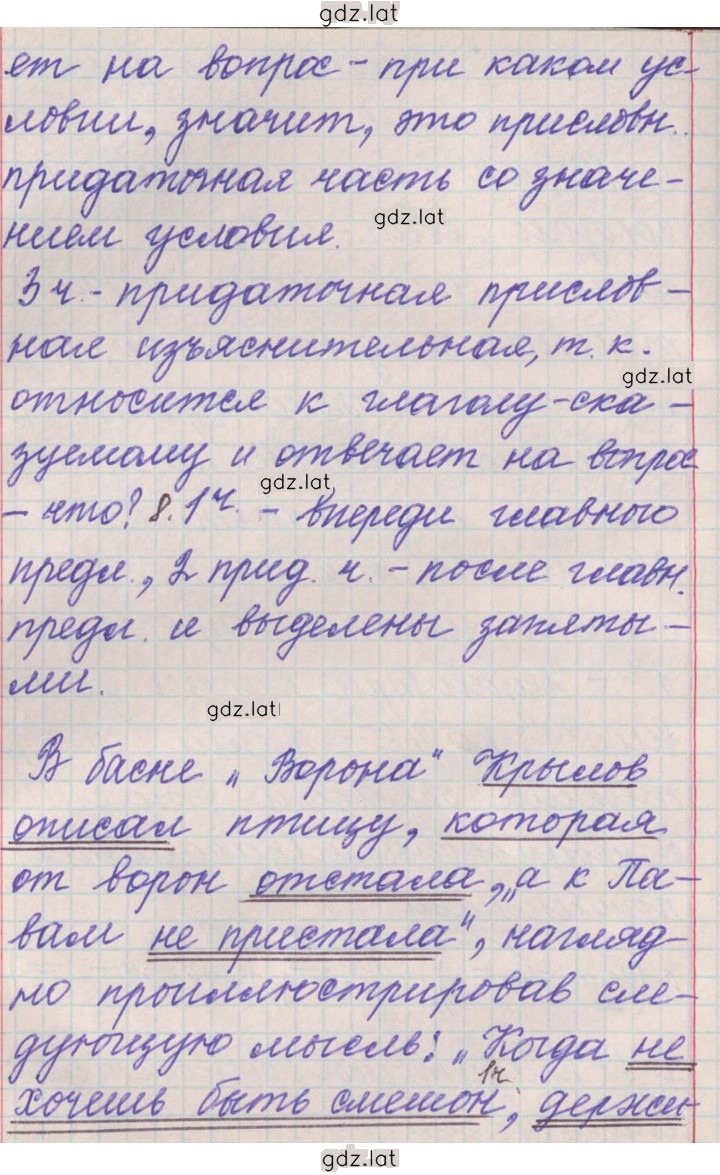 gdz.lat
ет на вопрос - при каком ус-
ловии, значит, это присловн.
придаточная часть со значе-
gdz.lat
нием условия.
3 ч. - придаточная прислов-
ная изъяснительная, т. к.
gdz.lat
относится к глаголу-ска-
зуемому и отвечает на вопрос
gdz.lat
- что? 8. 1 ч. - впереди главного
предл., 2 прид. ч. - после главн.
предл. и выделены запяты-
ми.
gdz.lat
В басне „Ворона" Крылов
описал птицу, которая
от ворон отстала, „а к Па-
вам не пристала", нагляд-
но проиллюстрировав сле-
дующую мысль: „Когда не
1ч
хочешь быть смешон, держи-
gdz.lat